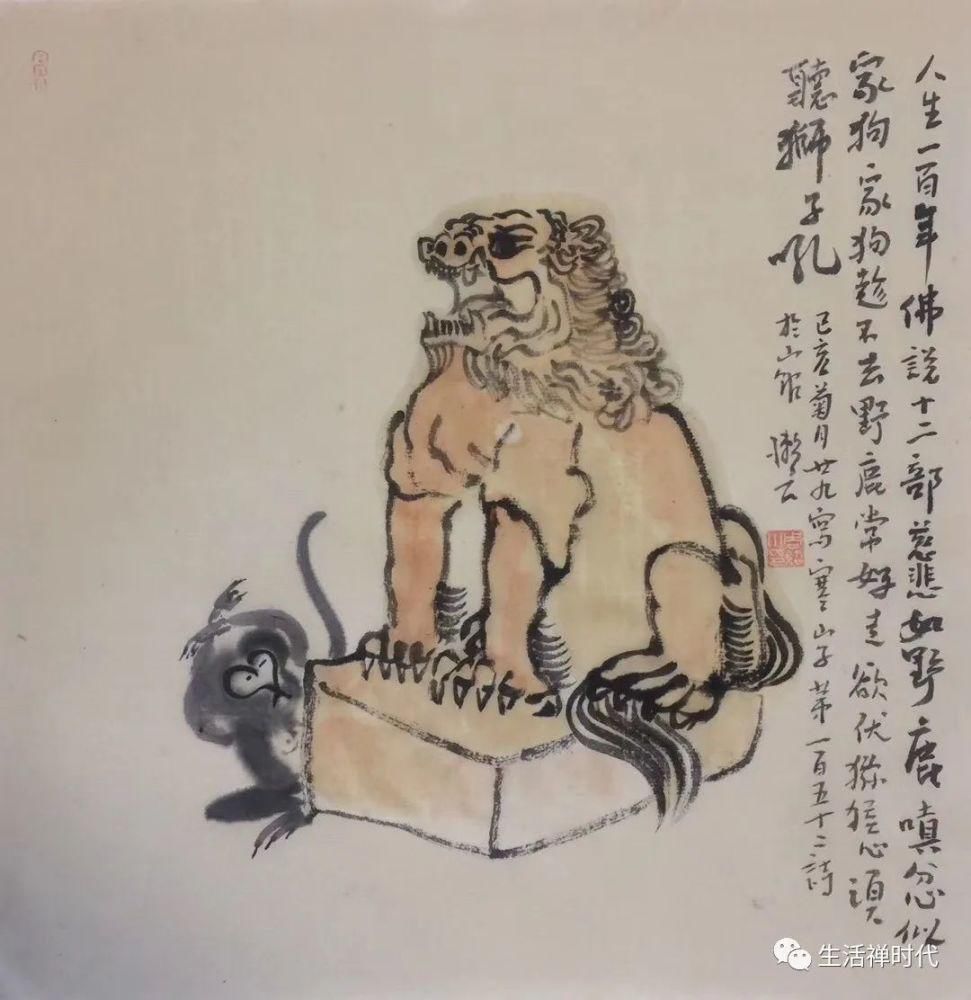 人生一百年佛説十二部慈悲如野鹿嗔忿似
家狗家狗趁不去野鹿常好走欲伏猕猴心須
聽獅子吼
己亥菊月廿九寫寒山子第一百五十二詩
於山館
生活禅时代